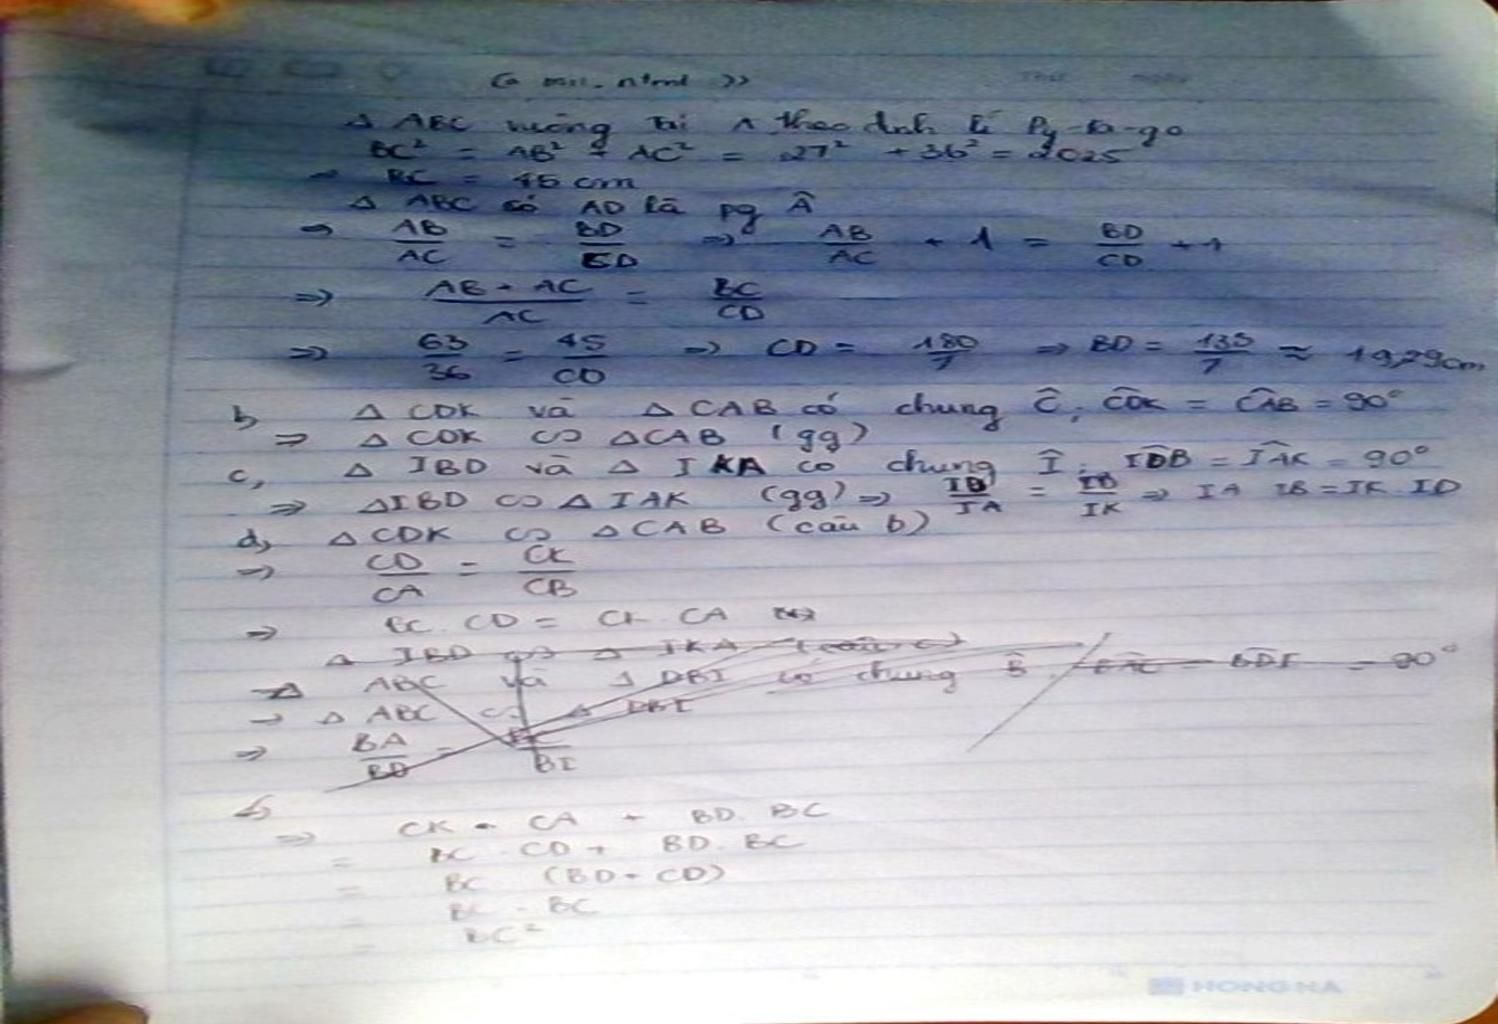 Δ ABC vuông tại A theo định lí Py-ta-go
BC² = AB² + AC² = 27² + 36² = 2025
⇒ BC = 45 cm
Δ ABC có AD là pg Â
⇒ AB/AC = BD/CD ⇒ AB/AC + 1 = BD/CD + 1
⇒ AB + AC/AC = BC/CD
⇒ 63/36 = 45/CD ⇒ CD = 180/7 ⇒ BD = 135/7 ≈ 19,29cm
b, Δ CDK và Δ CAB có chung Ĉ, CDK = CAB = 90°
⇒ Δ CDK ∽ Δ CAB (gg)
c, Δ IBD và Δ IKA có chung Î; IDB = IAK = 90°
⇒ ΔIBD ∽ Δ IAK (gg) ⇒ IB/IA = ID/IK ⇒ IA IB = IK. ID
d, Δ CDK ∽ Δ CAB (câu b)
⇒ CD/CA = CK/CB
⇒ BC. CD = CK. CA
Δ IBD ∽ Δ IKA (câu c)
Δ ABC và Δ DBI có chung B̂. BAC = BDI = 90°
⇒ Δ ABC ∽ Δ DBI
⇒ BA/BD = BC/BI
⇒ CK . CA + BD. BC
= BC . CD + BD. BC
= BC (BD + CD)
= BC . BC
= BC²
HONG HA